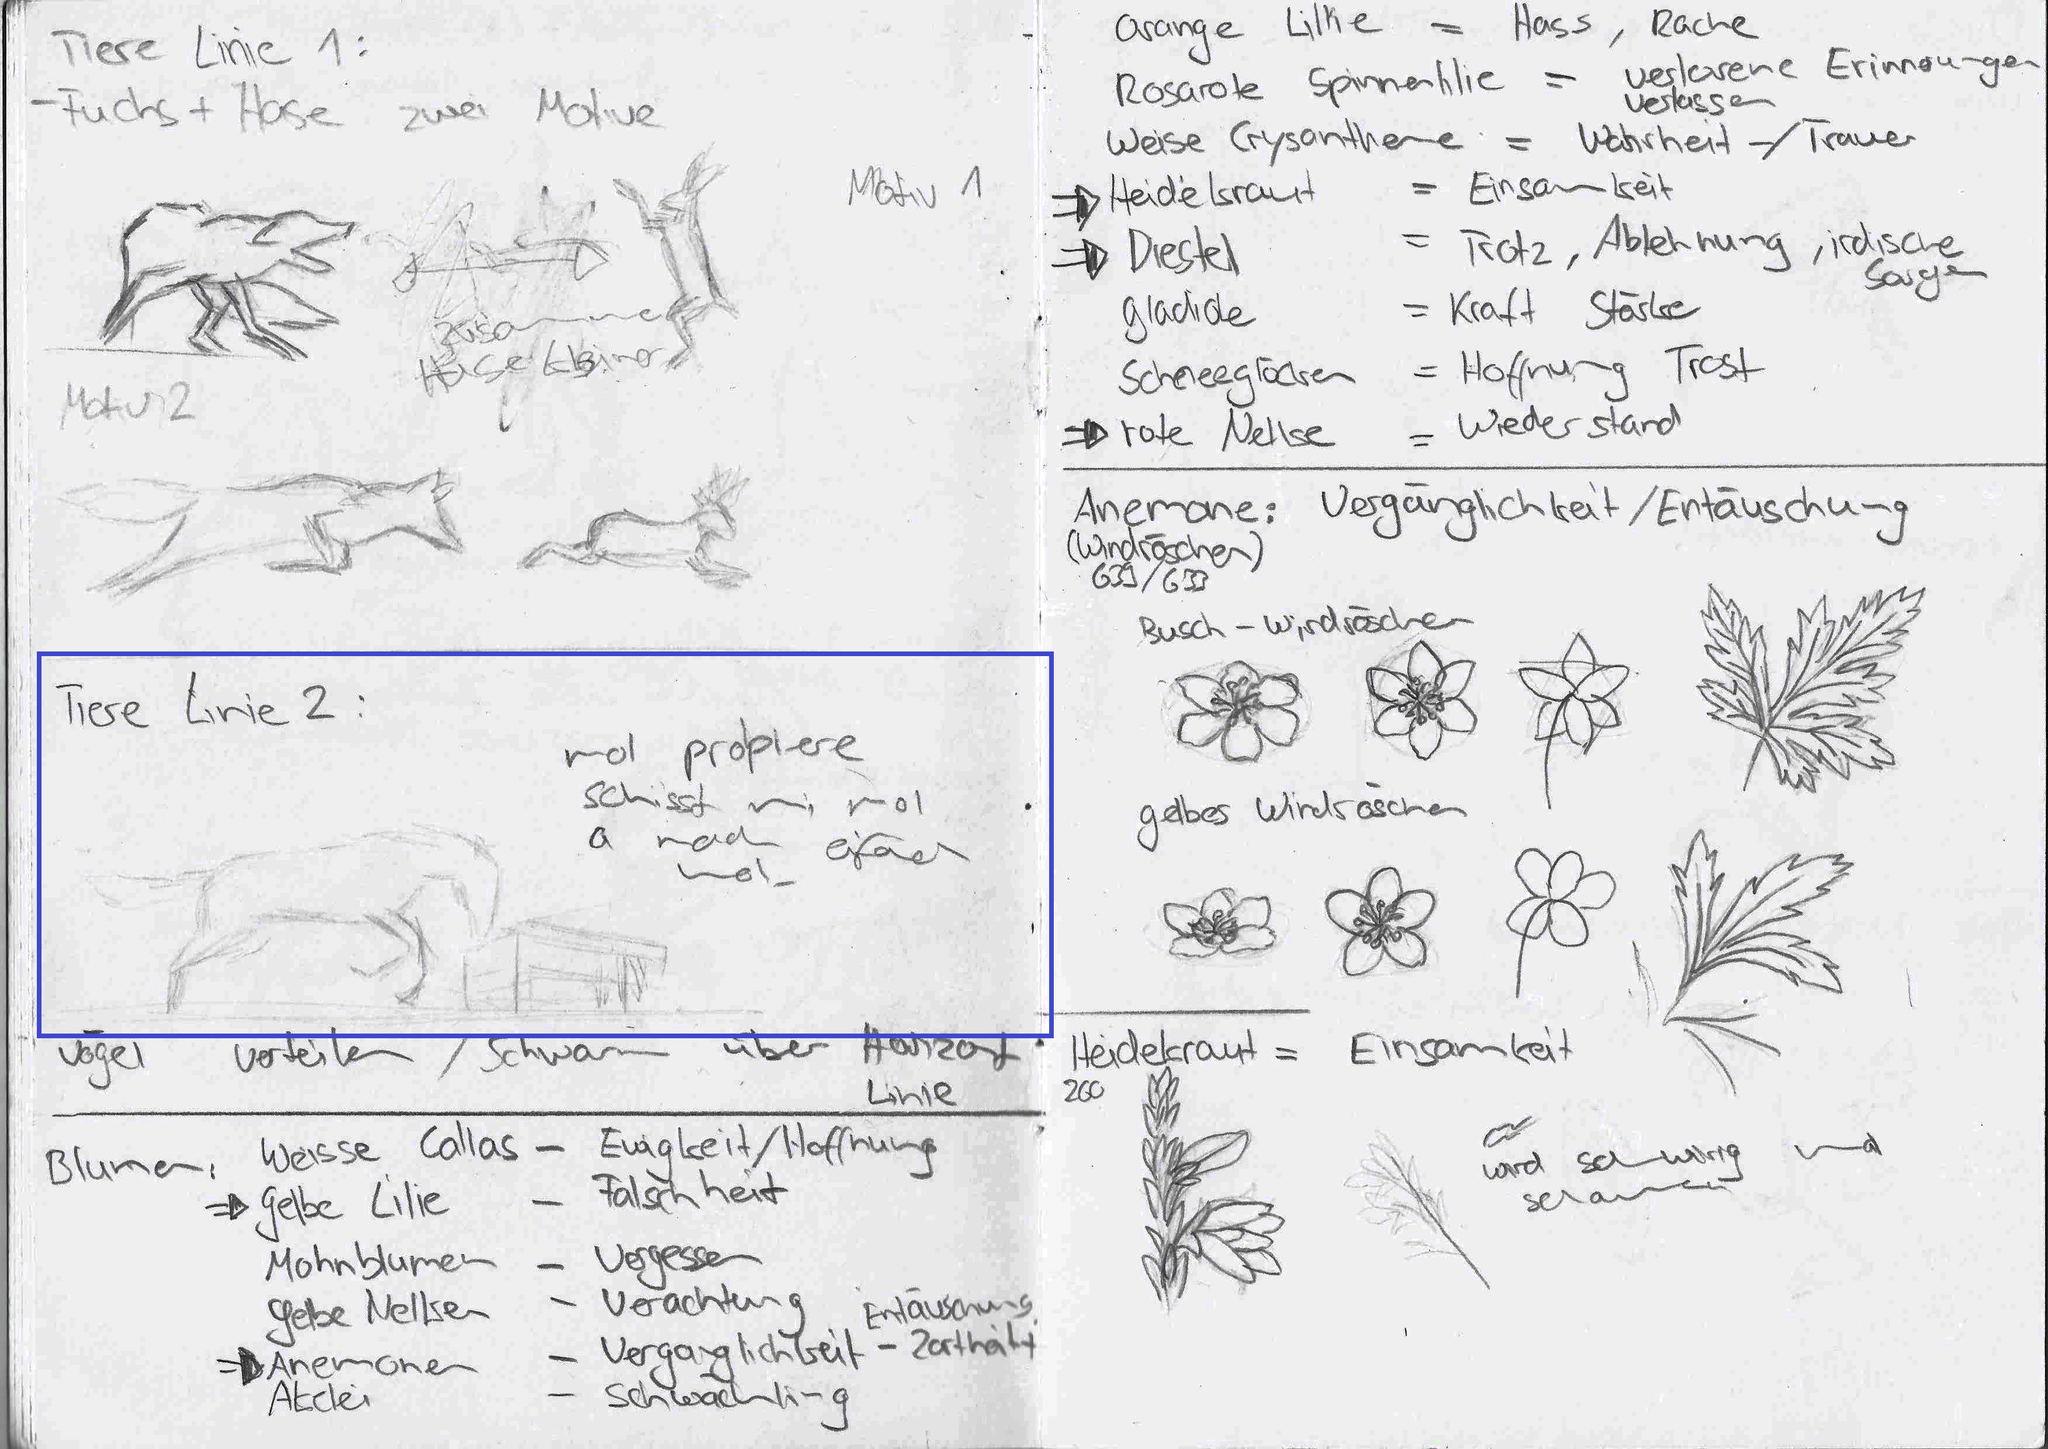 Tiere Linie 1:
-Fuchs + Hase zwei Motive
Motiv 1
zusamme
Hase kleiner
Motiv 2
Tiere Linie 2:
mol probiere
schisst mi mol
a mach eifach
mol
Vögel verteilen / Schwarm über Horizont
Linie
Blumen: Weisse Callas - Ewigkeit/Hoffnung
⇒ gelbe Lilie - Falschheit
Mohnblumen - Vergessen
gelbe Nelken - Verachtung Entäuschung
⇒ Anemonen - Verganglichkeit - Zartheit
Aklei - Schwächling
Orange Lilie = Hass, Rache
Rosarote Spinnenlilie = verlorene Erinnerungen
verlassen
Weise Crysantheme = Wahrheit -/Trauer
⇒ Heidekraut = Einsamkeit
⇒ Diestel = Trotz, Ablehnung, irdische
Sorgen
gladiole = Kraft Stärke
Schneeglöcken = Hoffnung Trost
⇒ rote Nelke = Wiederstand
Anemone: Vergänglichkeit/Entäuschung
(Windröschen)
Busch-windröschen
gelbes Windröschen
Heidekraut = Einsamkeit
260
wird schwirig mal